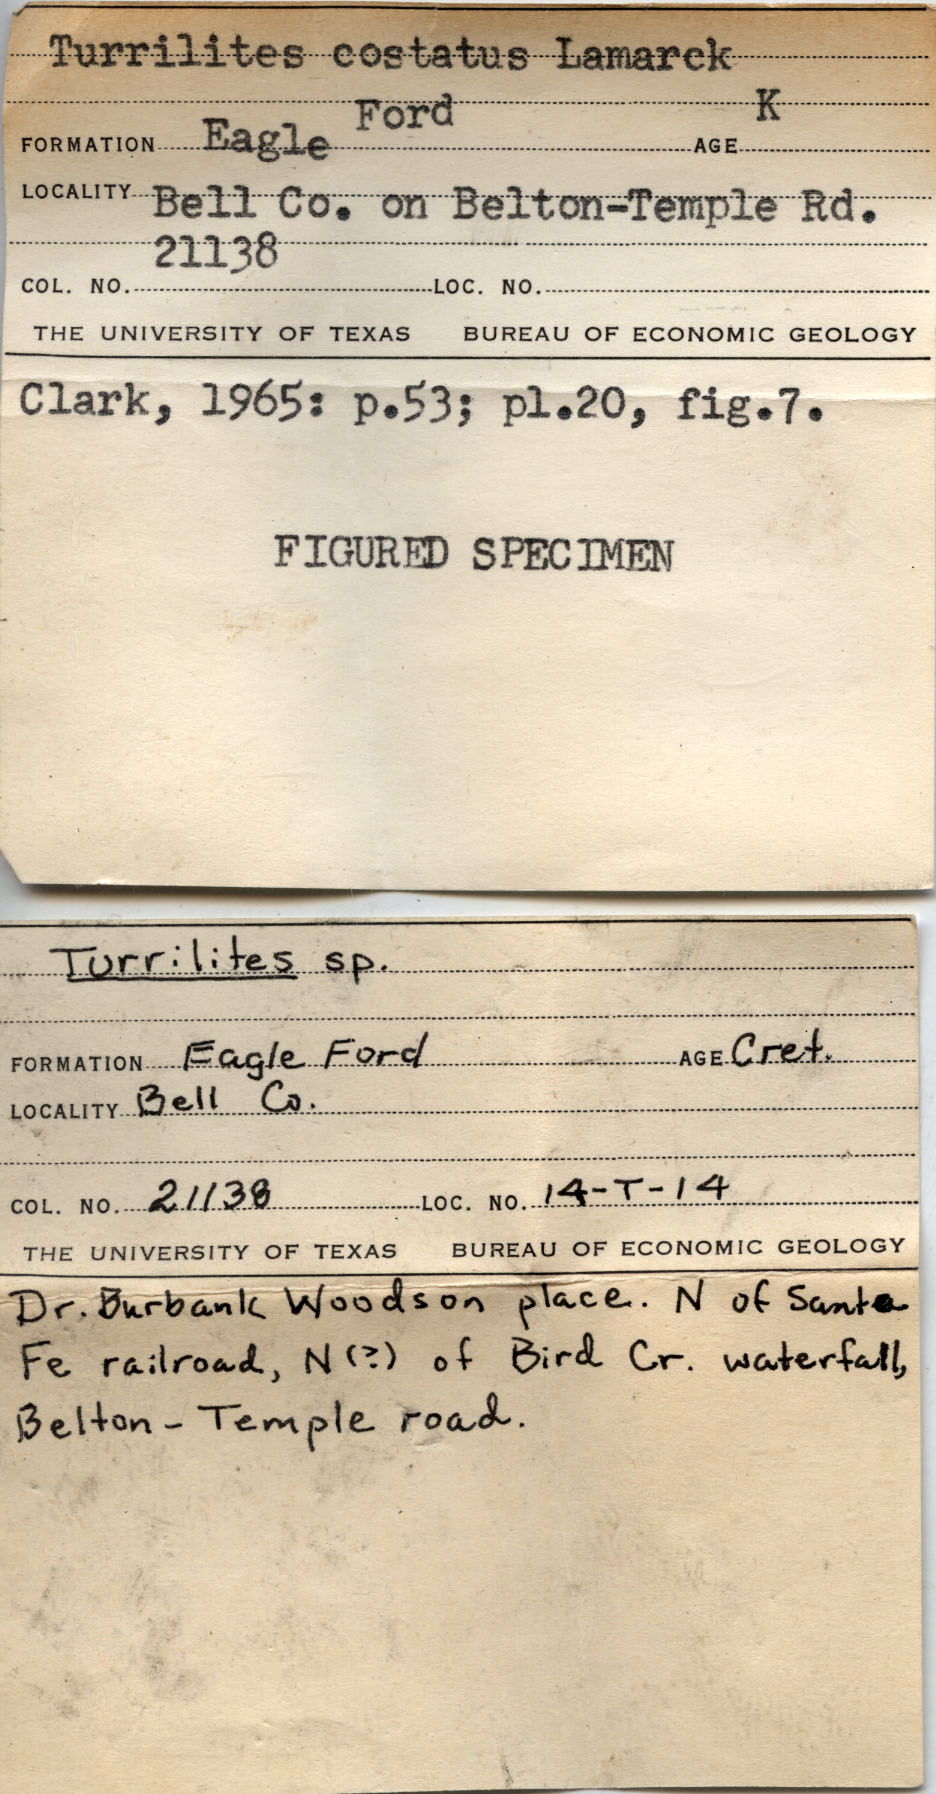 Turrilites costatus Lamarck
FORMATION Eagle Ford AGE K
LOCALITY Bell Co. on Belton-Temple Rd.
COL. NO. 21138 LOC. NO.
THE UNIVERSITY OF TEXAS BUREAU OF ECONOMIC GEOLOGY
Clark, 1965: p.53; pl.20, fig.7.
FIGURED SPECIMEN
Turrilites sp.
FORMATION Eagle Ford AGE Cret.
LOCALITY Bell Co.
COL. NO. 21138 LOC. NO. 14-T-14
THE UNIVERSITY OF TEXAS BUREAU OF ECONOMIC GEOLOGY
Dr. Burbank Woodson place. N of Santa
Fe railroad, N(?) of Bird Cr. waterfall,
Belton - Temple road.